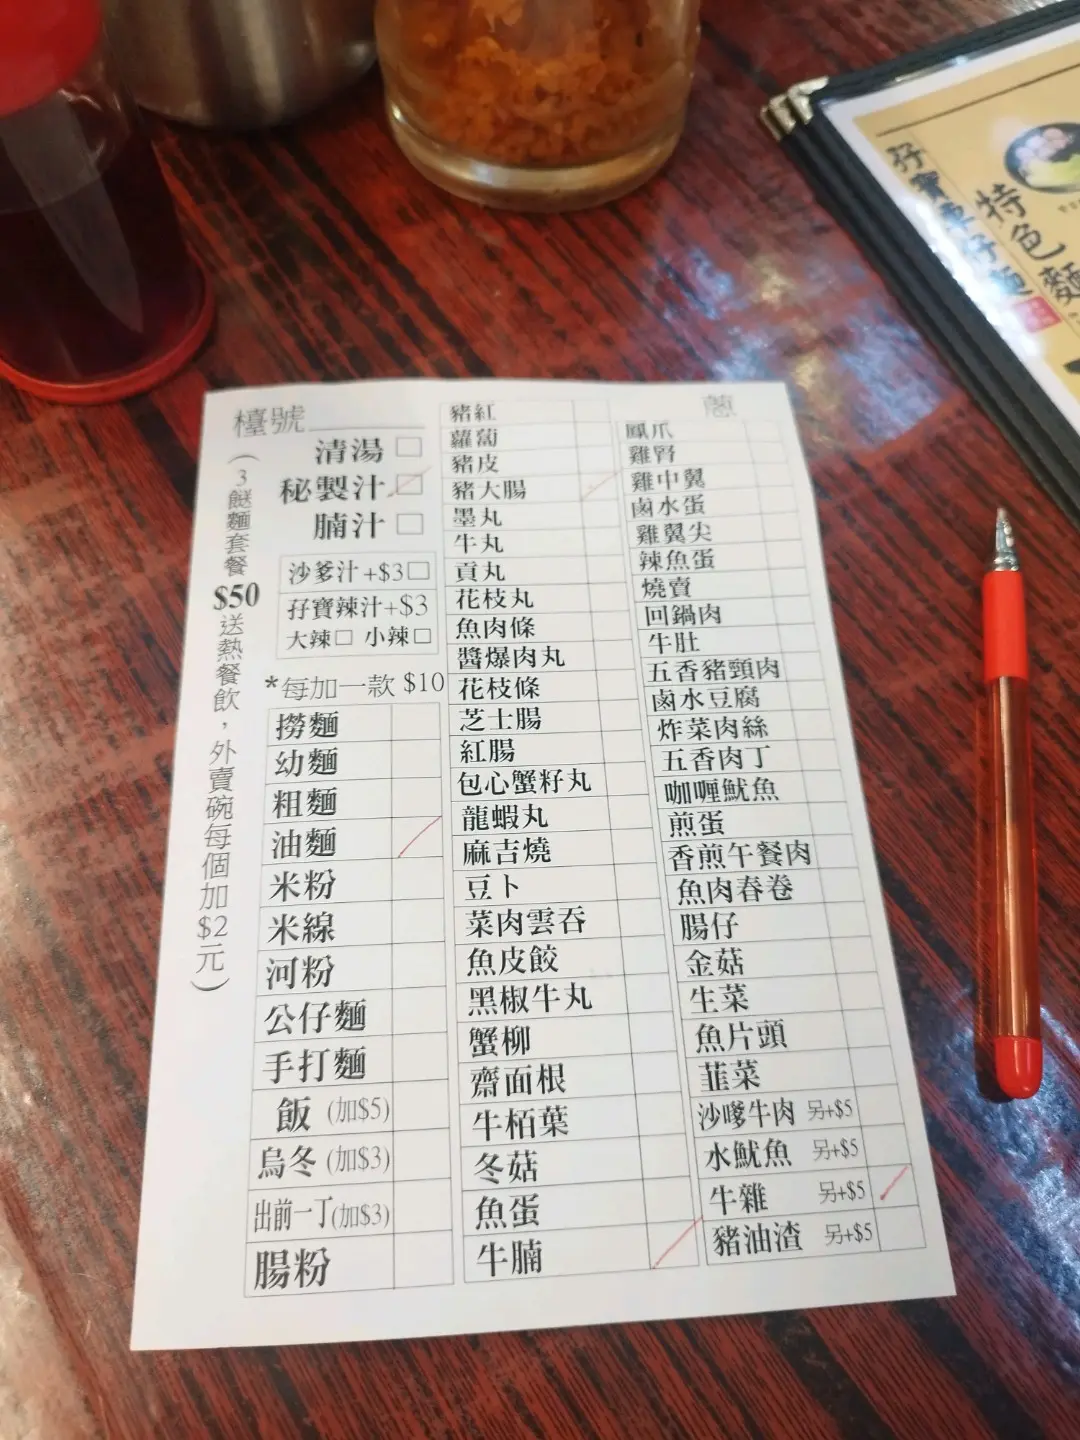 檯號
清湯 □
秘製汁 □
腩汁 □
沙爹汁+$3□
孖寶辣汁+$3
大辣□ 小辣□
*每加一款 $10
(3餸麵套餐$50送熱餐飲，外賣碗每個加$2元)
撈麵
幼麵
粗麵
油麵
米粉
米線
河粉
公仔麵
手打麵
飯 (加$5)
烏冬 (加$3)
出前一丁(加$3)
腸粉
豬紅
蘿蔔
豬皮
豬大腸
墨丸
牛丸
貢丸
花枝丸
魚肉條
醬爆肉丸
花枝條
芝士腸
紅腸
包心蟹籽丸
龍蝦丸
麻吉燒
豆卜
菜肉雲吞
魚皮餃
黑椒牛丸
蟹柳
齋面根
牛栢葉
冬菇
魚蛋
牛腩
蔥
鳳爪
雞腎
雞中翼
鹵水蛋
雞翼尖
辣魚蛋
燒賣
回鍋肉
牛肚
五香豬頸肉
鹵水豆腐
炸菜肉絲
五香肉丁
咖喱魷魚
煎蛋
香煎午餐肉
魚肉春卷
腸仔
金菇
生菜
魚片頭
韮菜
沙嗲牛肉 另+$5
水魷魚 另+$5
牛雜 另+$5
豬油渣 另+$5
孖寶車仔麵
特色麵